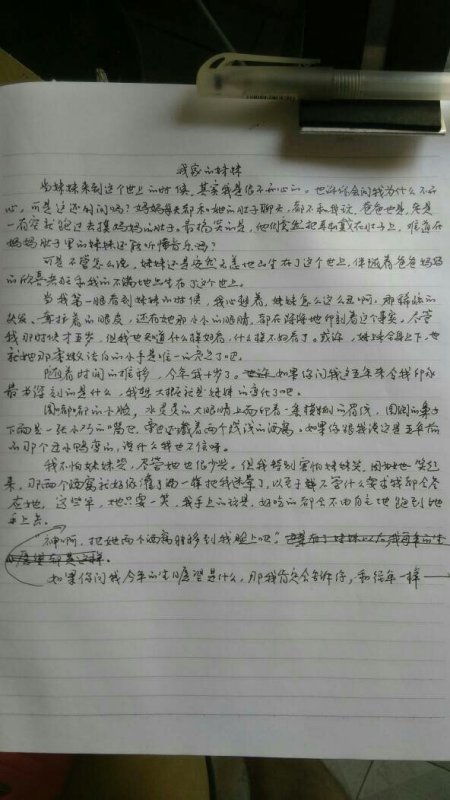 我家的妹妹
当妹妹来到这个世上的时候,其实我是很不开心的。也许你会问我为什么不开
心,可是这还用问吗?妈妈每天都和她的肚子聊天,都不和我说,爸爸也是,老是
一有空就跑过去摸妈妈的肚子。最搞笑的是,他们竟然把耳机戴在肚子上,难道在
妈妈肚子里的妹妹还能听懂音乐吗?
可是不管怎么说,妹妹还是安然无恙地出生在了这个世上,伴随着爸爸妈妈
的欣喜 我的不满地出生在了这个世上。
当我第一眼看到妹妹的时候,我心想着,妹妹怎么这么丑啊,那稀疏的
头发、 着的眼皮,还有她那小小的眼睛,都在深深地印刻着这个事实。尽管
我那时候才五岁,但我也知道什么样好看,什么样不好看了。或许,妹妹全身上下,也
就她那 嫩洁白的小手是唯一的亮点了吧。
随着时间的推移,今年我十岁了。如果你问我这五年来令我印象
最为深刻的是什么,我想大概就是妹妹的变化了吧。
圆嘟嘟的小脸,水灵灵的大眼睛上面印着一条 的眉线,圆圆的鼻子
下面是一张小巧的嘴巴,旁边还藏着两个浅浅的酒窝。如果你跟我说这是五年前
的那个丑小鸭变的,说什么我也不信呀。
我不怕妹妹哭,尽管她也很少哭。但我特别害怕妹妹笑,因为她一笑起
来,那两个酒窝就好像灌了酒一样把我迷晕了,以至于我不管什么要求我都会答
应她,这些年,她只要一笑,我手上的玩具,好吃的都会不由自主地跑到她
手上去。
神啊,把她两个酒窝转移到我脸上吧!
如果你问我今年的生日愿望是什么,那我肯定会告诉你,和往年一样——